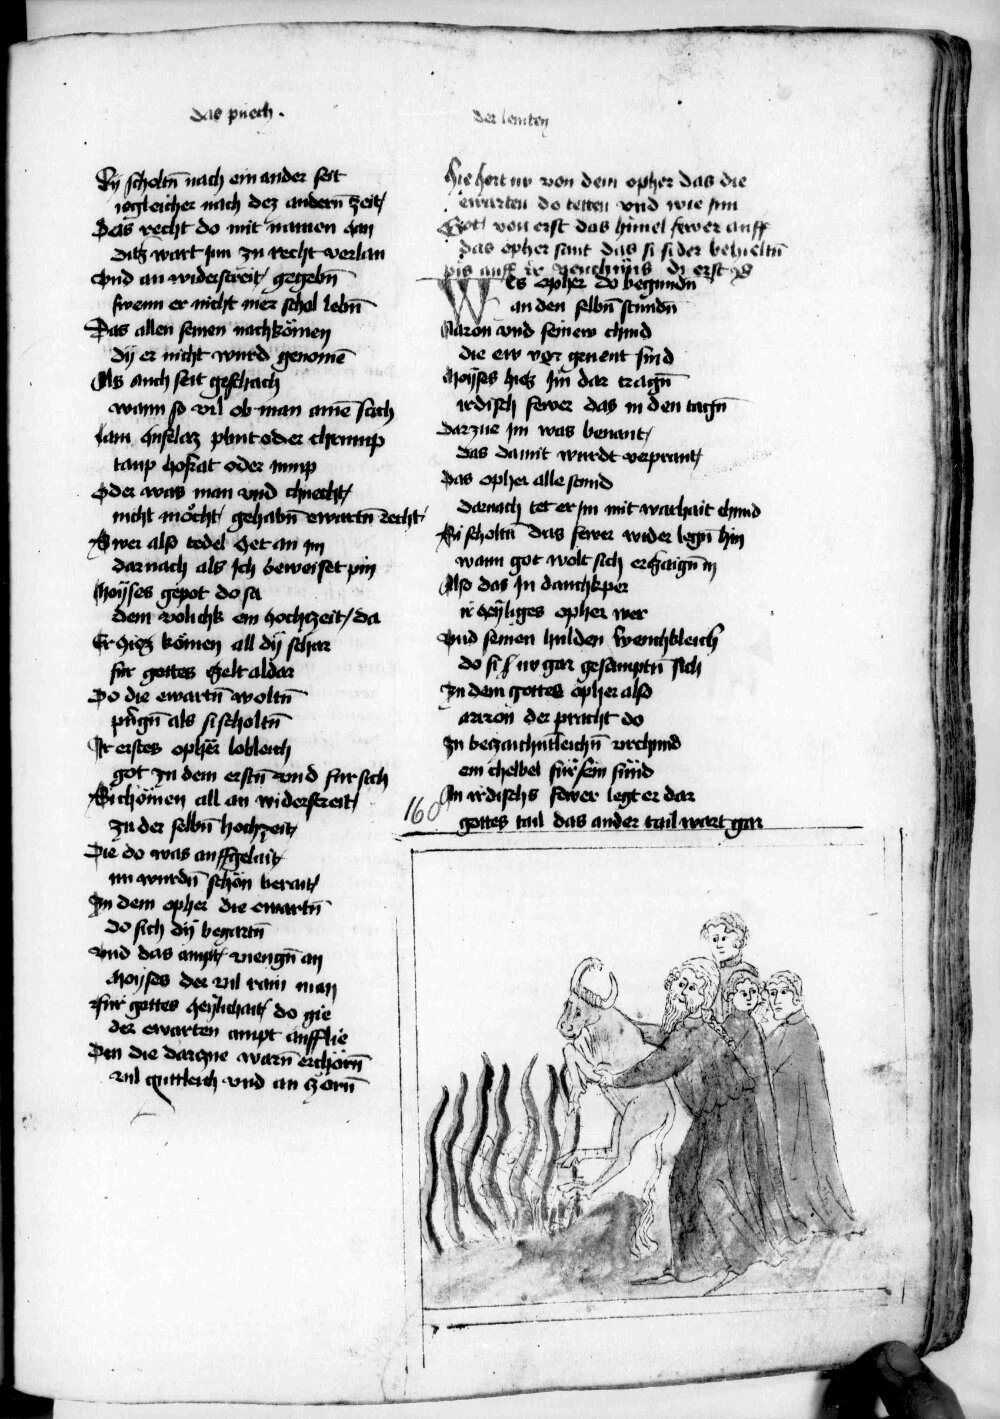 das puech .
der leuiten
Dy scholtn̄ nach ein ander seit
iegleicher nach dez andern̄ zeit /
Das recht do mit namen han
ditz wart im zu recht verlan
Vnd an widerstreit / gegebn̄
swenn er nicht mer schol lebn̄
Das allen seinen nachkömen
dy er nicht wurd genomē
Als auch seit geschach
wann so vil ob man amē sach
lam hufslacz plint oder chrump
taup hofrat oder tump
Oder was man vnd chnecht /
nicht möcht / gehabn̄ ewartn̄ recht /
Swer also tedel het an im
darnach als ich beweiset pin
Moyses gepot do sa
dem volichk ein hochtzeit / da
Er hiez kömen all dy schar
fur gottes tzelt aldar
Do die ewartn̄ woltn̄
phlegn̄ als si scholtn̄
Ir erstes opher lobleich
got zu dem erstn̄ vnd fur sich
Si chömen all an widerstreit /
zu der selbn̄ hochzeit /
Die do was auffgelait /
nu wurdn̄ schön berait /
Zu dem opher die ewartn̄
do sich dy begartn̄
Vnd das ampt / viengn̄ an
Moyses der vil rain man
fur gottes heylichait / do gie
der ewarten ampt aufflie
Den die darzue warn̄ erchörn̄
vil guttleich vnd an zorn̄
Hie hort nv von dem opher das die
ewarten do tetten vnd wie sun
Got / von erst das himel fewer auff
das opher sant das si sider behieltn̄
pis auff ir venchnus di erst
Es opher do begundn̄
an den selbn̄ stundn̄
Aaron vnd seinew chind
die ew vor genent sind
Moyses hiez im dar tragn̄
irdisch fewer das in den tagn̄
Darzue im was benant /
das damit wurdt verprant /
Das opher alle stund
darnach tet er im mit warhait chund
Si scholtn̄ das fewer wider legn̄ hin
wann got wolt sich ertzaign̄ in
Also das in danchkper
ir heyliges opher wer
Vnd seinen hulden wenchkleich
do si nv gar gesamptn̄ sich
Zu dem gottes opher also
aaron der pracht do
Zu betzaichntleichn̄ vrchund
ein chelbel für sein sünd
An irdischs fewer legt er dar
gottes tail das ander tail wart gar
160